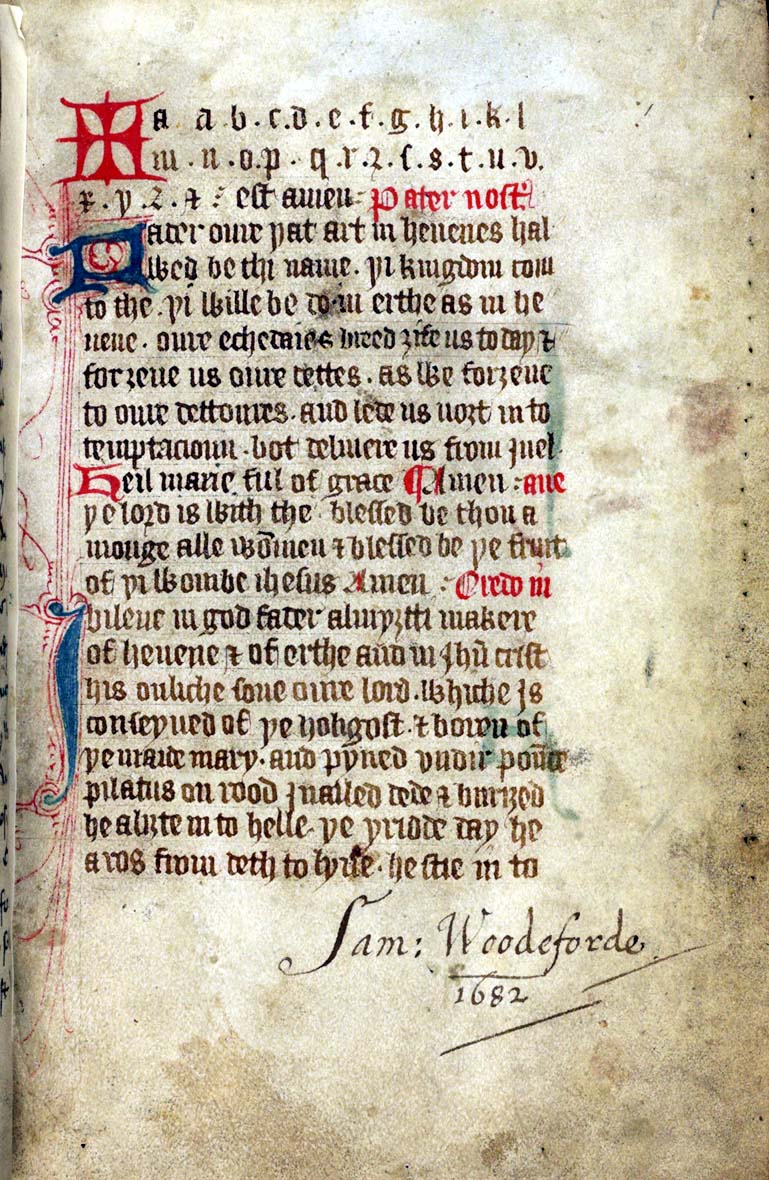 a a b . c . d . e . f . g . h . i . k . l
m . n . o . p . q . r . ꝛ . ſ . s . t . u . v .
x . y . z . & : est amen : Pater nost
Fader oure yat art in heuenes hal
wed be thi name . yi kingdom com
to the . yi wille be do in erthe as in he
uene . oure eche daies breed ȝife us to day &
forȝeue us oure dettes . as we forȝeue
to oure dettoures . and lede us nort in to
temptacioun . bot deliuere us from juel .
Heil marie ful of grace Amen : aue
ye lord is with the blessed be thou a
monge alle wōmen & blessed be ye fruit
of yi wombe ihesus Amen : Credo in
I bileue in god fader almyȝtti makere
of heuene & of erthe and in Jhū crist
his onliche sone oure lord . whiche Is
conseyued of ye holigost . & boren of
ye maide mary . and pyned vndir pounce
pilatus on rood Jnailed dede & buriȝed
he aliȝte in to helle . ye yridde day he
aros from deth to lyue . he stie in to
Sam: Woodeforde
1682